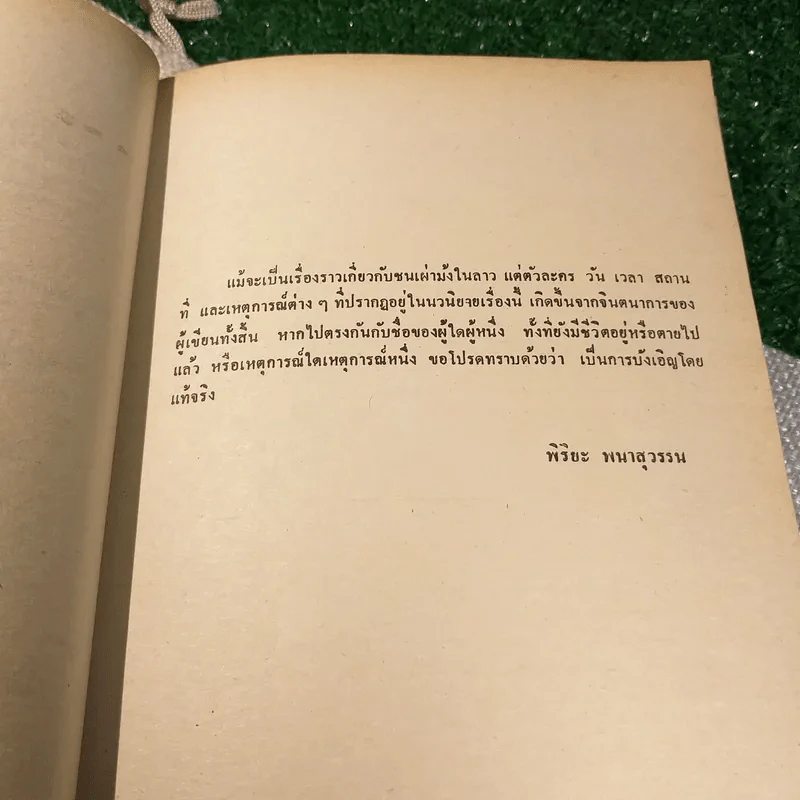 แม้จะเป็นเรื่องราวเกี่ยวกับชนเผ่าม้งในลาว แต่ตัวละคร วัน เวลา สถาน
ที่ และเหตุการณ์ต่าง ๆ ที่ปรากฏอยู่ในนวนิยายเรื่องนี้ เกิดขึ้นจากจินตนาการของ
ผู้เขียนทั้งสิ้น หากไปตรงกันกับชื่อของผู้ใดผู้หนึ่ง ทั้งที่ยังมีชีวิตอยู่หรือตายไป
แล้ว หรือเหตุการณ์ใดเหตุการณ์หนึ่ง ขอโปรดทราบด้วยว่า เป็นการบังเอิญโดย
แท้จริง
พิริยะ พนาสุวรรน